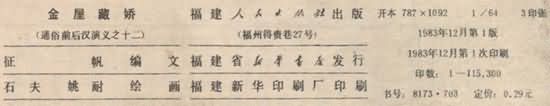 金屋藏娇
(通俗前后汉演义之十二)
征 帆 编 文
石 夫 姚 耐 绘 画
福建人民出版社出版
(福州得贵巷27号)
福建省新华书店发行
福建新华印刷厂印刷
开本 787×1092 1/64 3印张
1983年12月第1版
1983年12月第1次印刷
印数：1—115,300
书号：8173·703 定价：0.29元